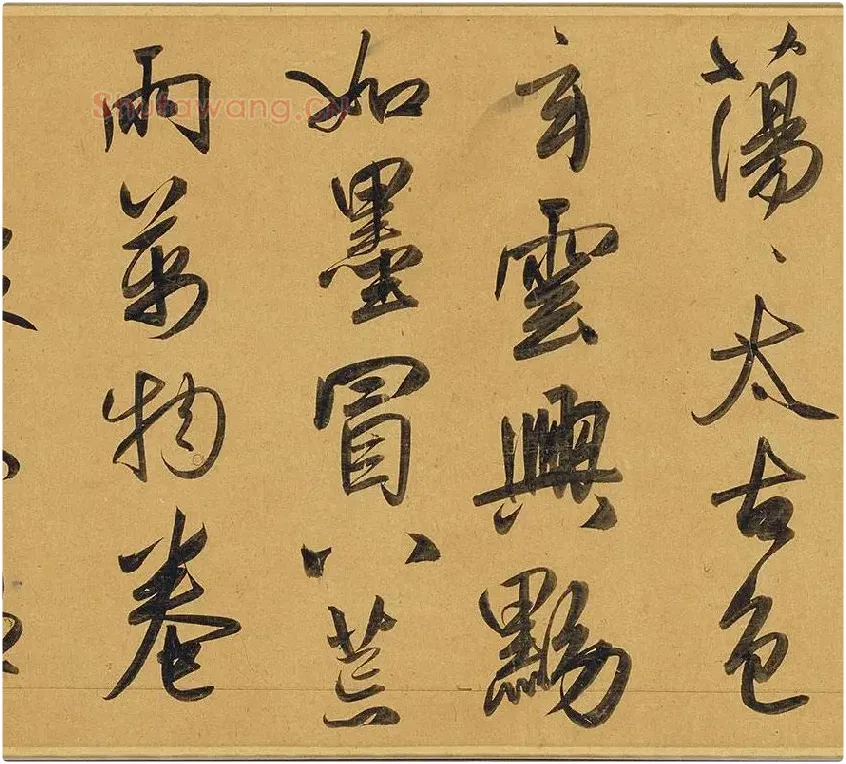 蕩〻太古色
玄雲興黝
如墨冒八荒
雨萬物卷
Shufawang.CN